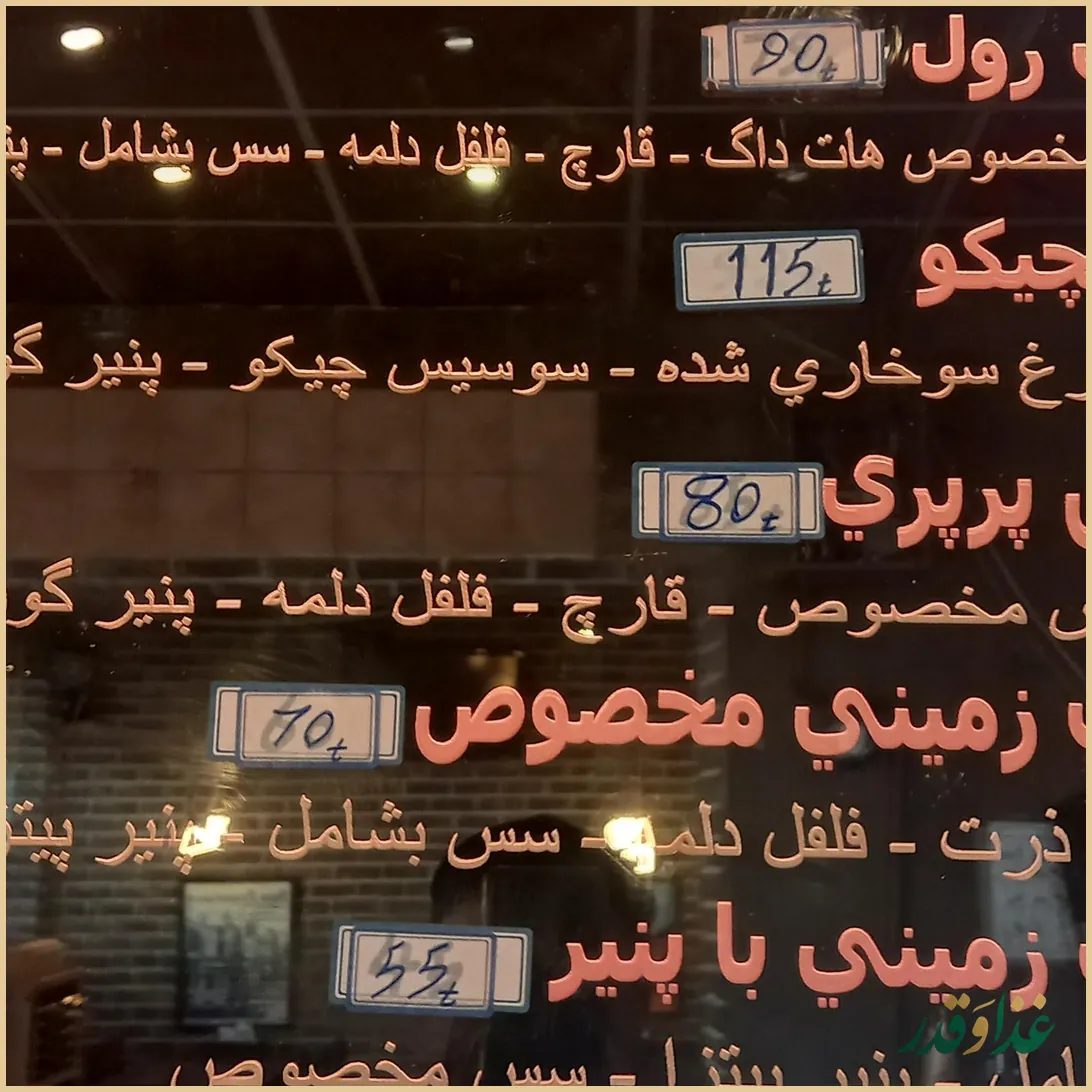 رول 90t
مخصوص هات داگ - قارچ - فلفل دلمه - سس بشامل -
چیکو 115t
سوخاري شده - سوسیس چیکو - پنیر
پرپري 80t
مخصوص - قارچ - فلفل دلمه - پنیر
زمیني مخصوص 70t
ذرت - فلفل دلمه - سس بشامل - پنیر
زمیني با پنیر 55t
پنیر پیتزا - سس مخصوص
غذاوَقدر